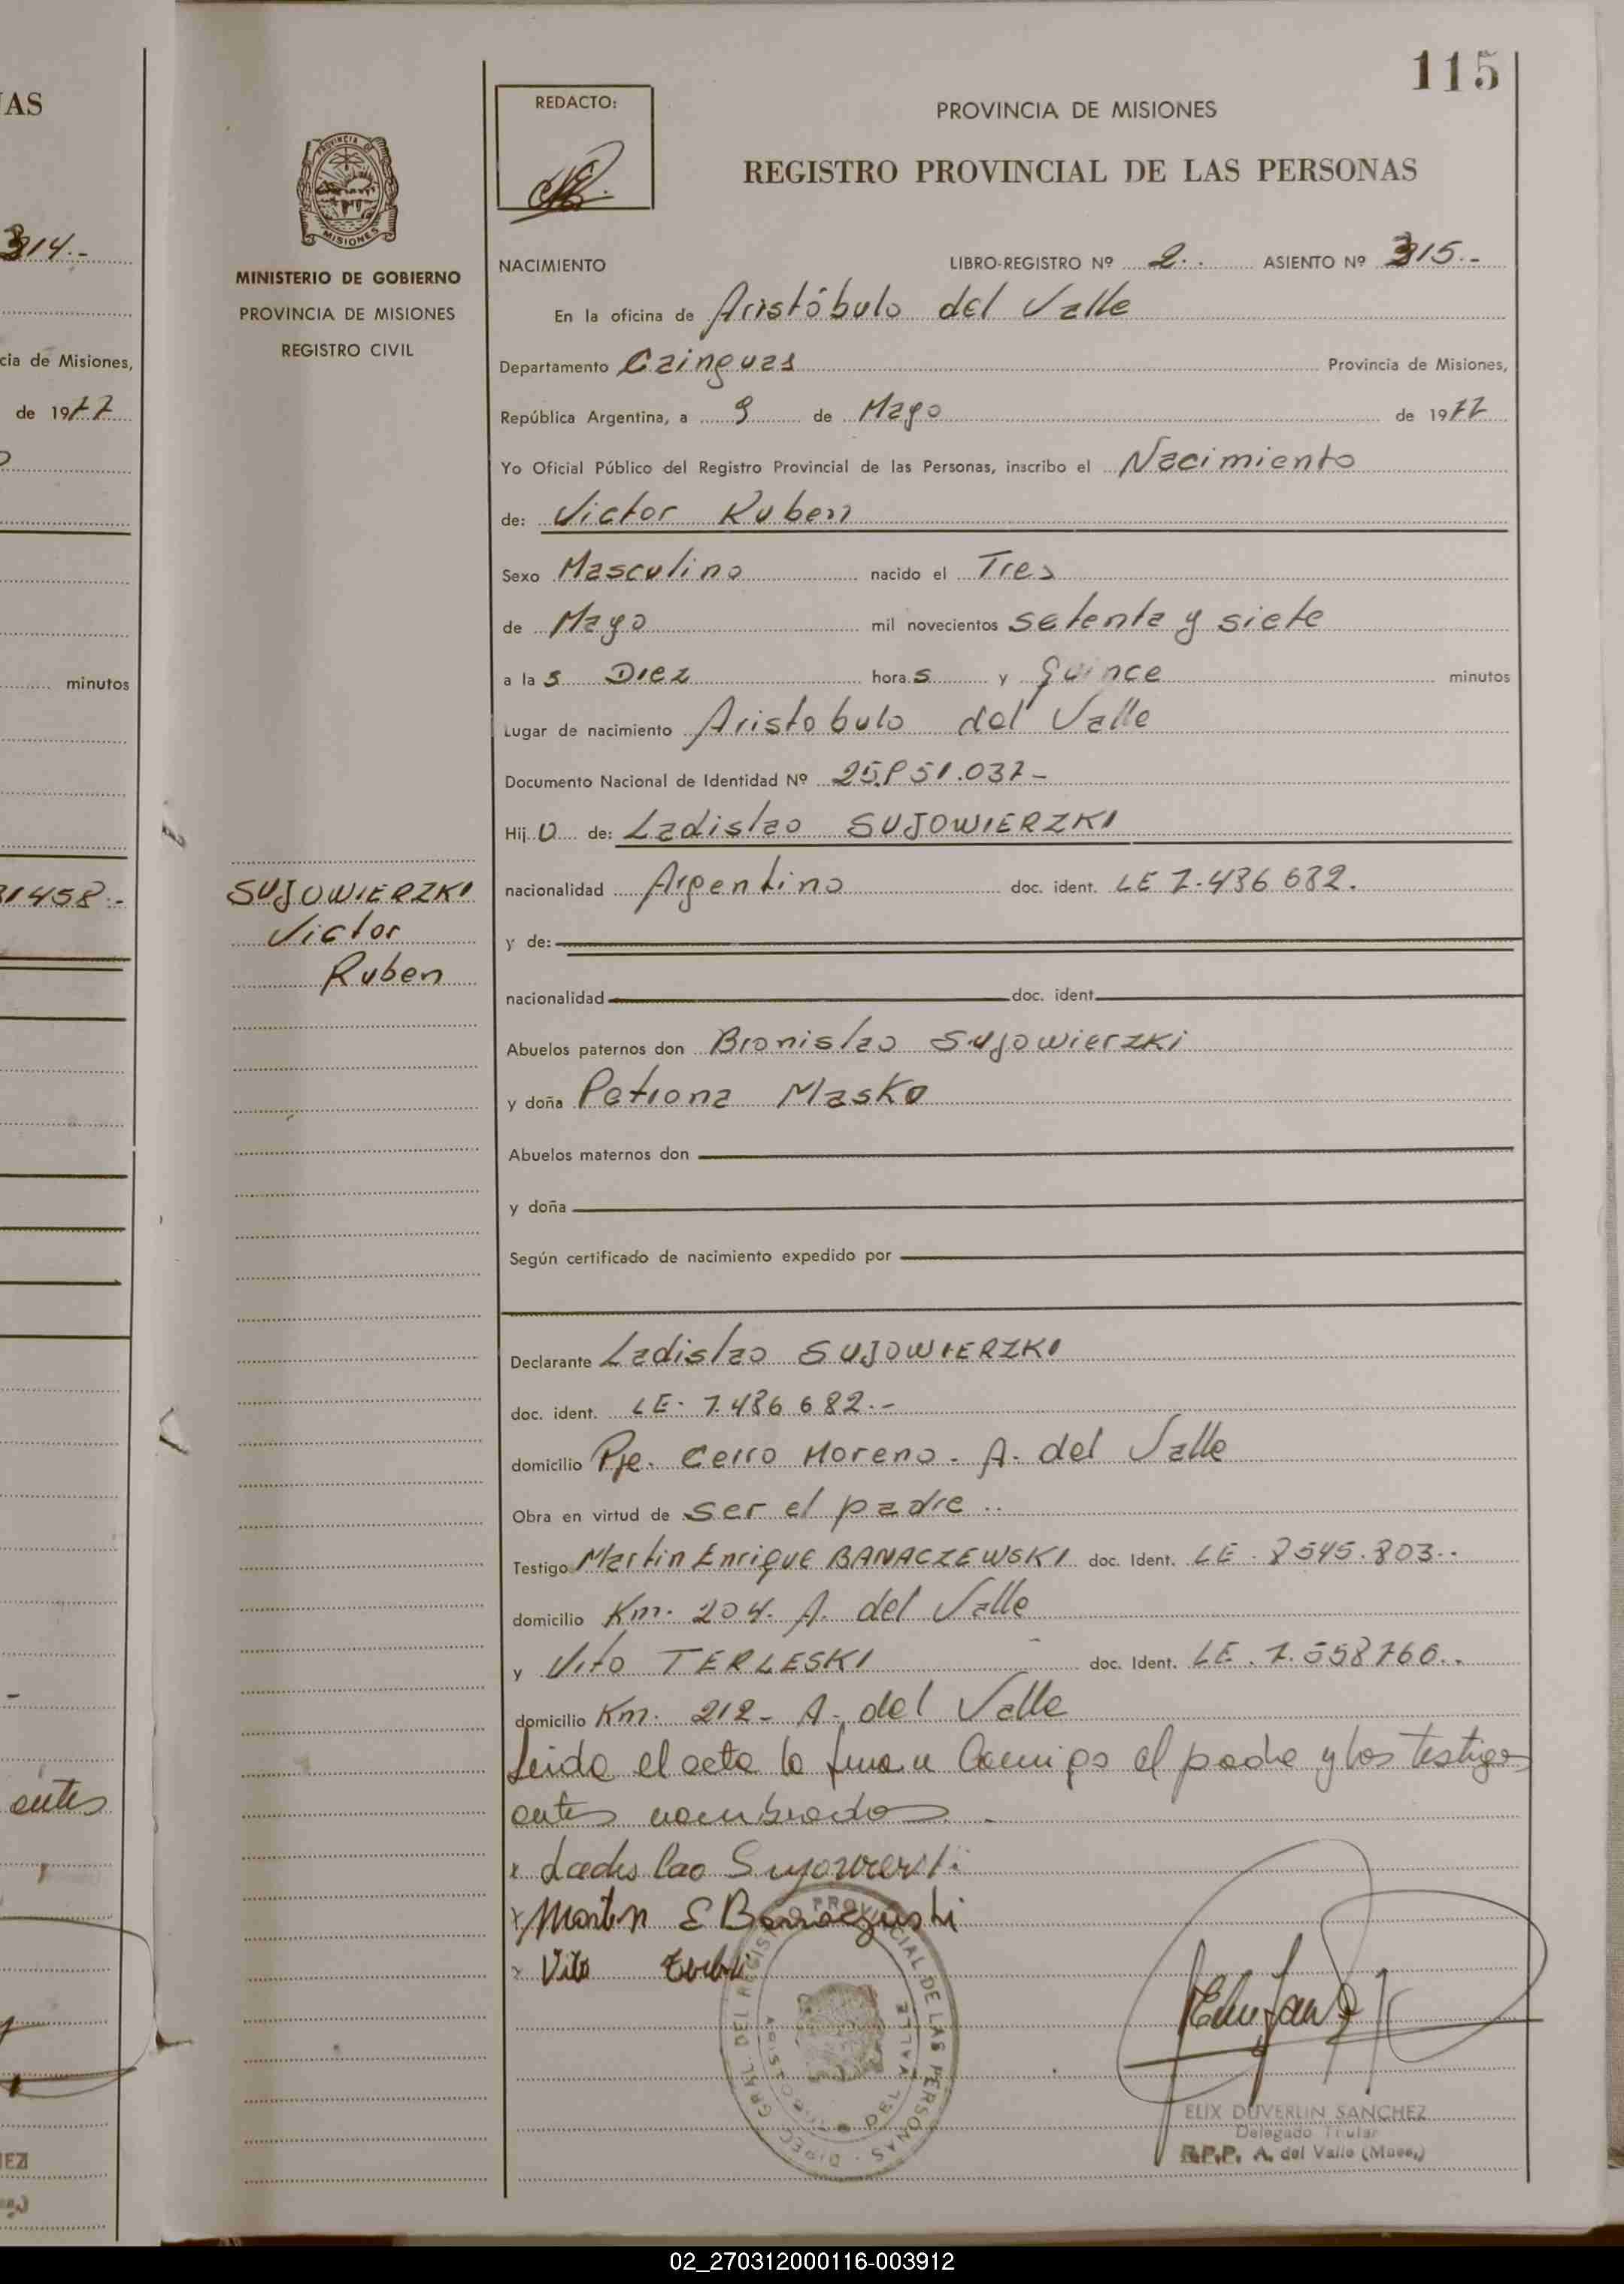 IAS
314.-
cia de Misiones,
de 1977
minutos
31458.-
entes
EZ
115
PROVINCIA DE
MISIONES
MINISTERIO DE GOBIERNO
PROVINCIA DE MISIONES
REGISTRO CIVIL
SUJOWIERZKI
Victor
Ruben
REDACTO:
PROVINCIA DE MISIONES
REGISTRO PROVINCIAL DE LAS PERSONAS
NACIMIENTO LIBRO-REGISTRO Nº 2.. ASIENTO Nº 315.-
En la oficina de Aristóbulo del Valle
Departamento Cainguas Provincia de Misiones,
República Argentina, a 9 de Mayo de 1977
Yo Oficial Público del Registro Provincial de las Personas, inscribo el Nacimiento
de: Victor Ruben
Sexo Masculino nacido el Tres
de Mayo mil novecientos setenta y siete
a las Diez horas y Quince minutos
Lugar de nacimiento Aristobulo del Valle
Documento Nacional de Identidad Nº
Hijo de: Ladislao SUJOWIERZKI
nacionalidad Argentino doc. ident. LE
y de:
nacionalidad doc. ident.
Abuelos paternos don Bronislao Sujowierzki
y doña Petrona Masko
Abuelos maternos don
y doña
Según certificado de nacimiento expedido por
Declarante Ladislao SUJOWIERZKI
doc. ident. LE. 7.486 682.-
domicilio Pje. Cerro Moreno. A. del Valle
Obra en virtud de ser el padre..
Testigo Martin Enrique BANACZEWSKI doc. Ident. LE. 8545.803..
domicilio Km. 204. A. del Valle
y Vito TERLESKI doc. Ident. LE. 7.558760..
domicilio Km. 212- A. del Valle
Leida el acta la firman conmigo el padre y los testigos
antes nombrados.-
x Ladislao
x Martin E
x Vito
DIREC. GRAL. DEL REGISTRO PROVINCIAL DE LAS PERSONAS
ARISTOBULO DEL VALLE
ELIX DUVERLIN SANCHEZ
Delegado Titular
R.P.P. A. del Valle (Mnes.)
02_270312000116-003912